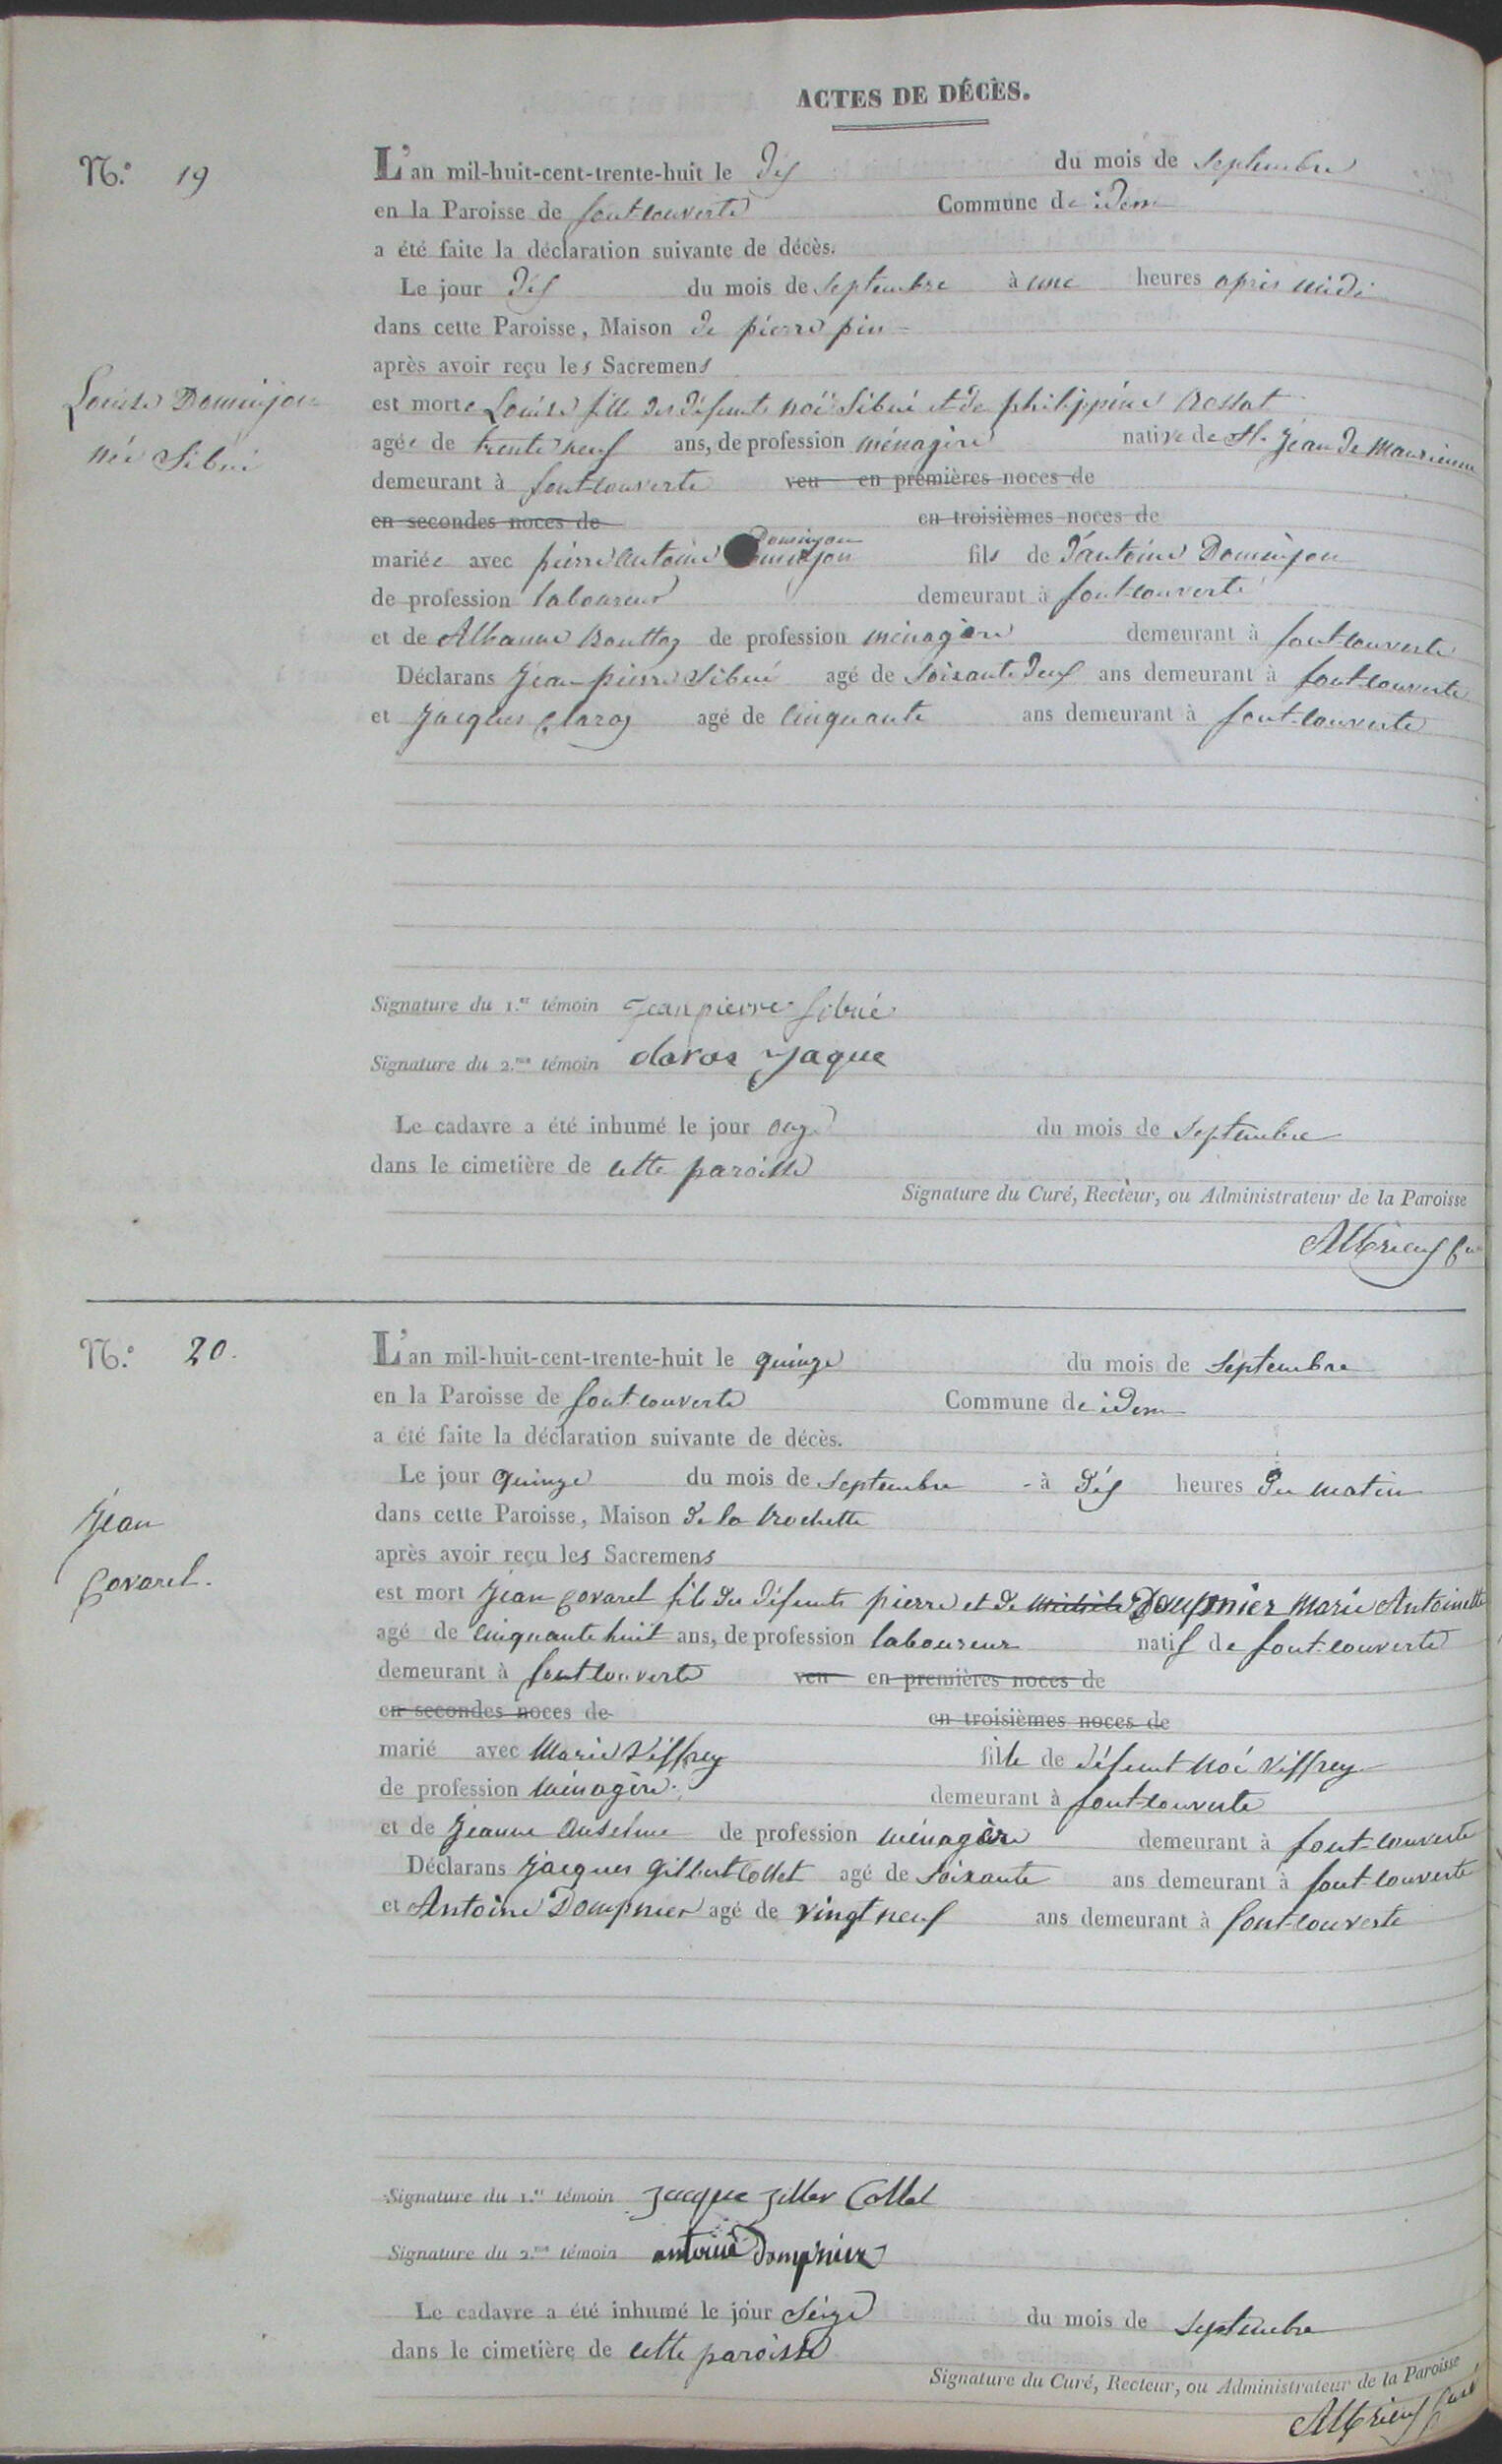 ACTES DE DÉCÈS.
N.º 19
L'an mil-huit-cent-trente-huit le dix du mois de Septembre
en la Paroisse de font-couverte Commune de idem
a été faite la déclaration suivante de décès.
Le jour dix du mois de Septembre à une heures après midi
dans cette Paroisse, Maison de pierre pin
après avoir reçu les Sacremens
Louise Dominjon
née Sibué
est morte Louise fille des défunts noë Sibué et de philippine Rossat
agée de trente neuf ans, de profession ménagère native de St. Jean de Maurienne
demeurant à font-couverte veu en premières noces de
en secondes noces de en troisièmes noces de
mariée avec pierre antoine Dominjon fils de d'antoine Dominjon
de profession laboureur demeurant à font-couverte
et de Albanne Bouttaz de profession ménagère demeurant à font-couverte
Déclarans Jean-pierre Sibué agé de Soixante deux ans demeurant à font-couverte
et Jacques Claraz agé de Cinquante ans demeurant à font-couverte
Signature du 1.er témoin Jean pierre Sibué
Signature du 2.me témoin claras Jaque
Le cadavre a été inhumé le jour onze du mois de Septembre
dans le cimetière de cette paroisse
Signature du Curé, Recteur, ou Administrateur de la Paroisse
N.º 20.
L'an mil-huit-cent-trente-huit le quinze du mois de Septembre
en la Paroisse de font-couverte Commune de idem
a été faite la déclaration suivante de décès.
Le jour quinze du mois de Septembre - à dix heures du matin
dans cette Paroisse, Maison de la Rochette
après avoir reçu les Sacremens
Jean
Covarel.
est mort Jean Covarel fils des défunts pierre et de Dompnier Marie Antoinette
agé de Cinquante huit ans, de profession laboureur natif de font-couverte
demeurant à font-couverte veu en premières noces de
en secondes noces de en troisièmes noces de
marié avec Marie Viffrey fille de défunt Noé Viffrey
de profession ménagère demeurant à font-couverte
et de Jeanne Anselme de profession ménagère demeurant à font-couverte
Déclarans Jacques Gilbert Collet agé de Soixante ans demeurant à font-couverte
et Antoine Dompnier agé de vingt neuf ans demeurant à font-couverte
Signature du 1.er témoin Jacque Collet
Signature du 2.me témoin antoine Dompnier
Le cadavre a été inhumé le jour Seize du mois de Septembre
dans le cimetière de cette paroisse
Signature du Curé, Recteur, ou Administrateur de la Paroisse